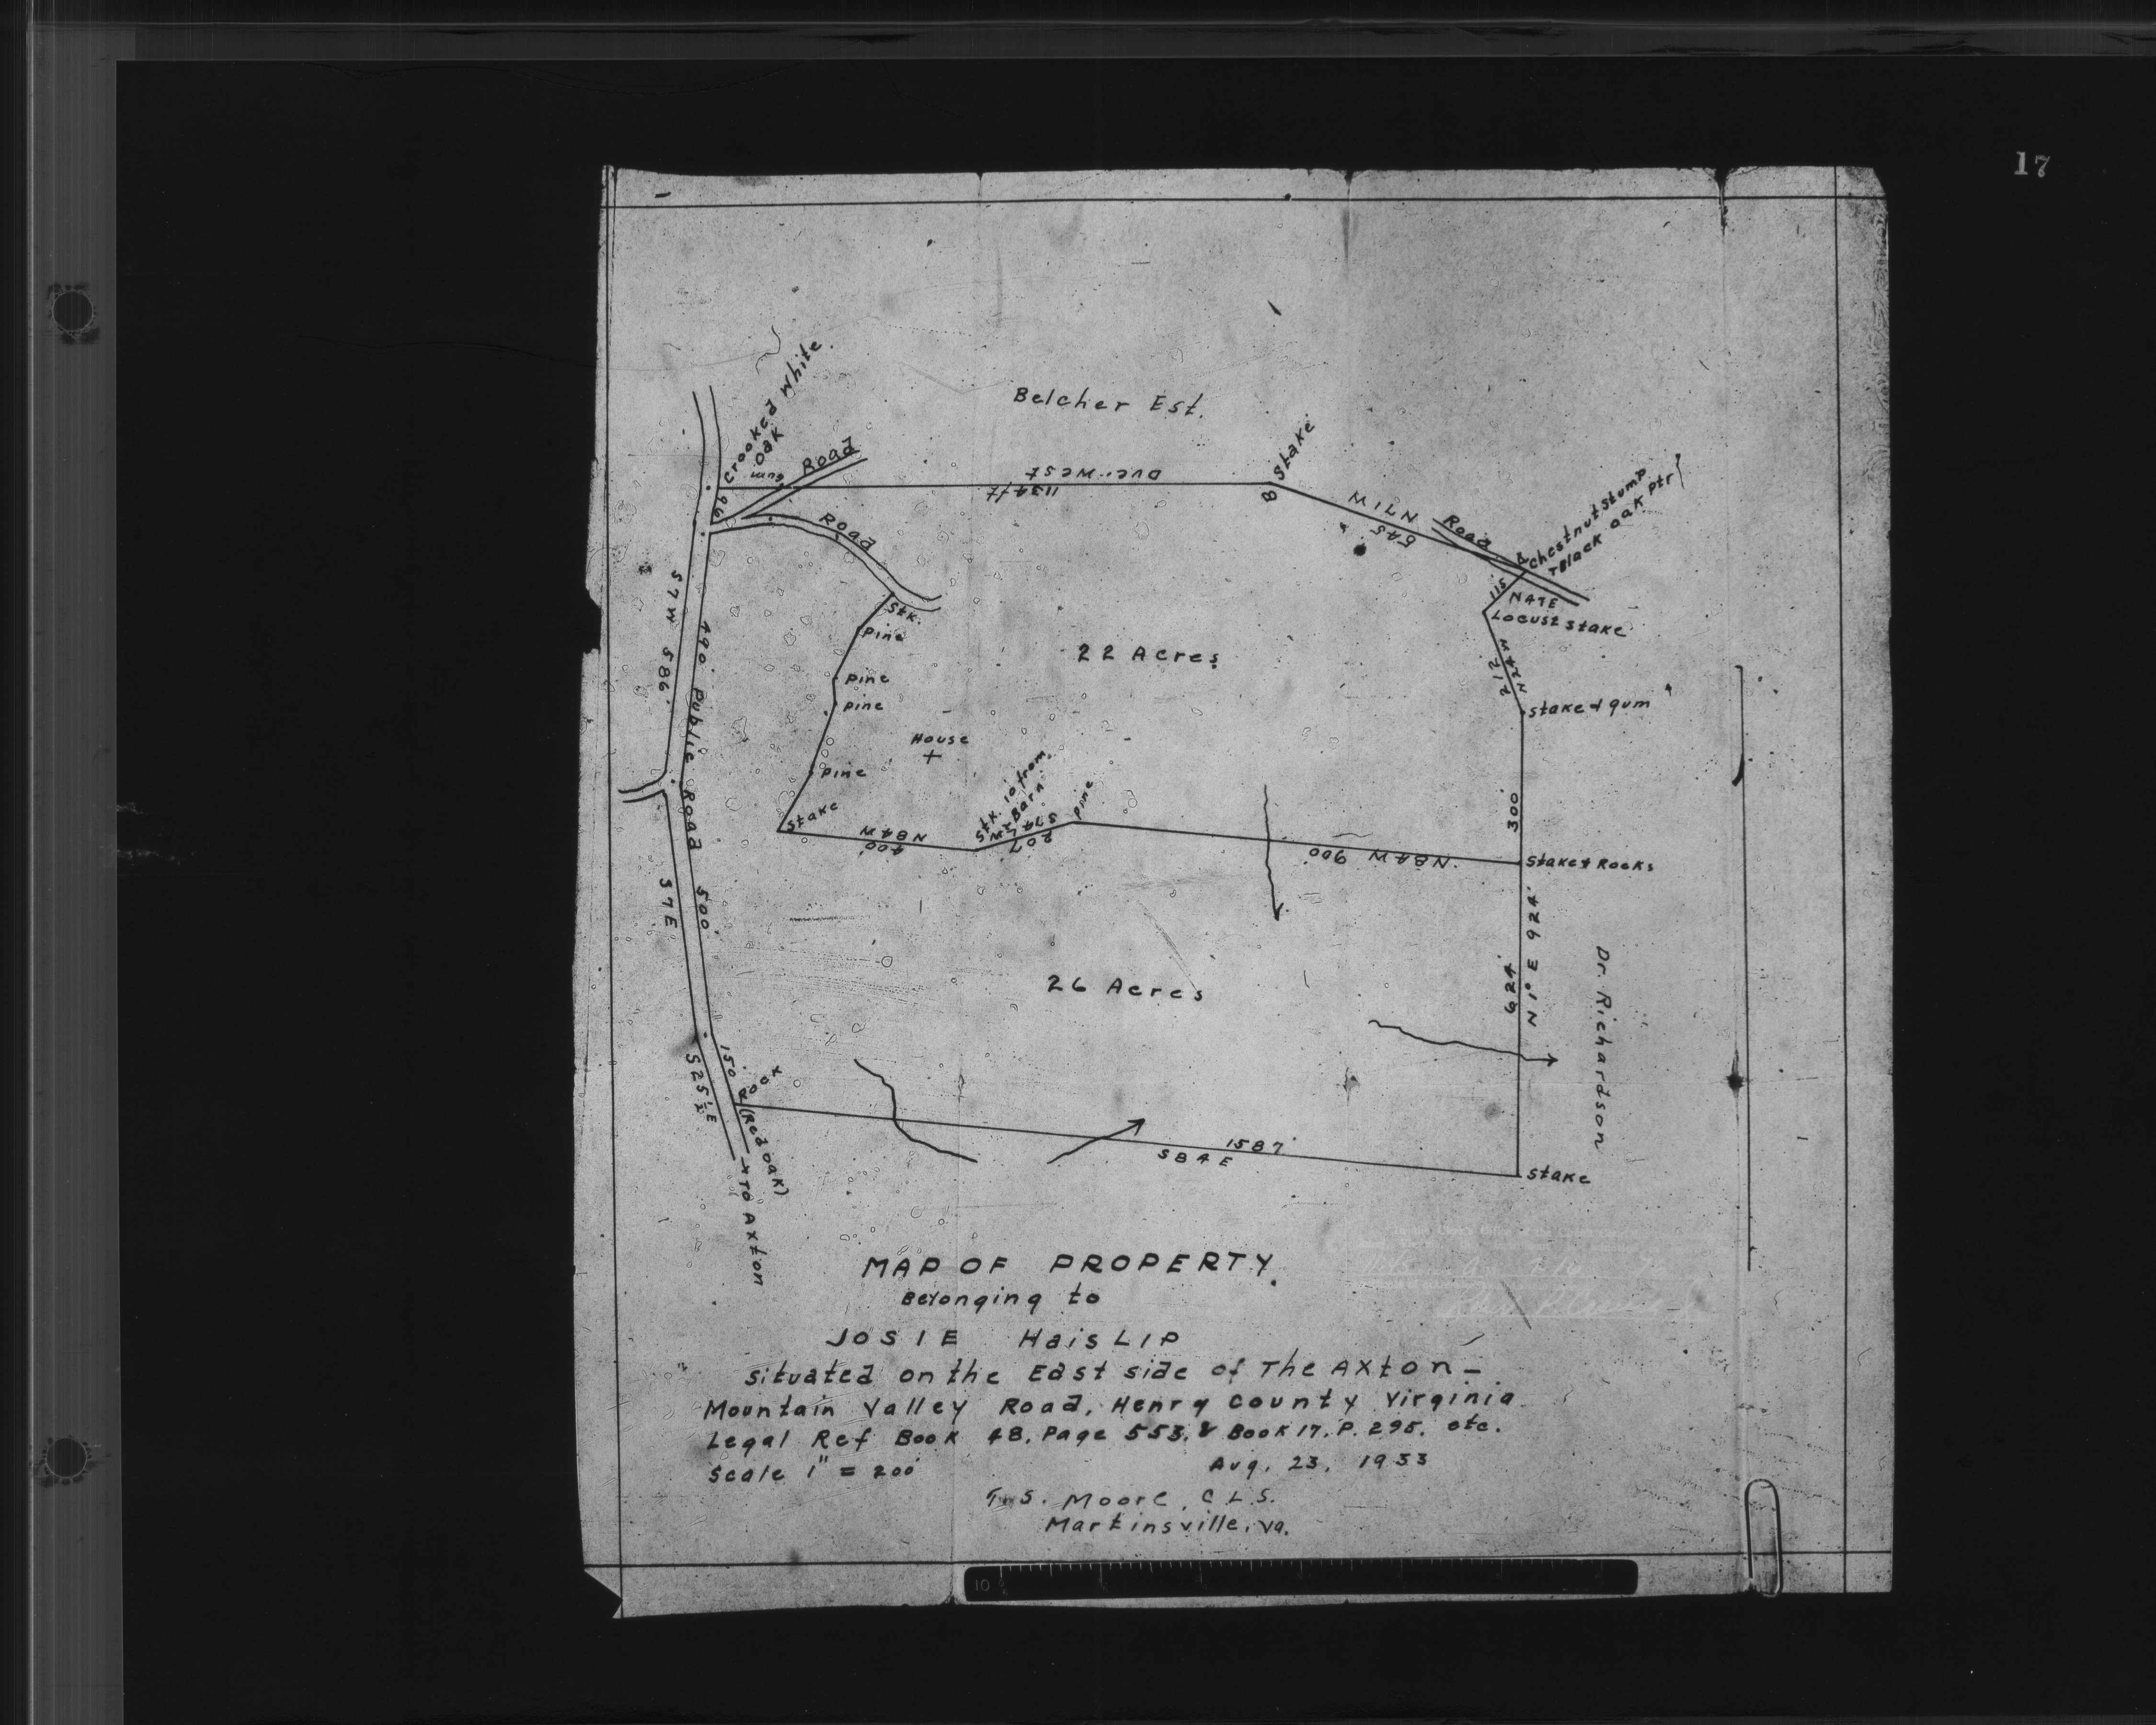 17
Crooked white
oak
Gum
Road
Belcher Est.
Due West
1134 ft
B Stake
N71W
545
Road
Chestnut Stump
+ Black oak Ptr
96
Road
S7W 586'
490' Public Road 500'
Stk.
Pine
Pine
Pine
Pine
Stake
22 Acres
House
115
N47E
Locust stake
212
N24W
Stake & gum
300'
Stk. 10' from
Barn
Pine
N84W
400'
207
N84W 900'
Stake & Rocks
N 1° E 924'
624'
Dr. Richardson
S7E
26 Acres
150'
S25½E
Rock
(Red oak)
To Axton
1587'
S84E
Stake
MAP OF PROPERTY
Belonging to
JOSIE HaisLIP
Situated on the East side of The Axton-
Mountain Valley Road, Henry County Virginia
Legal Ref Book 48, Page 553, & Book 17, P. 295, etc.
Scale 1" = 200'
Aug. 23, 1933
T. S. Moore, C.L.S.
Martinsville, Va.
10